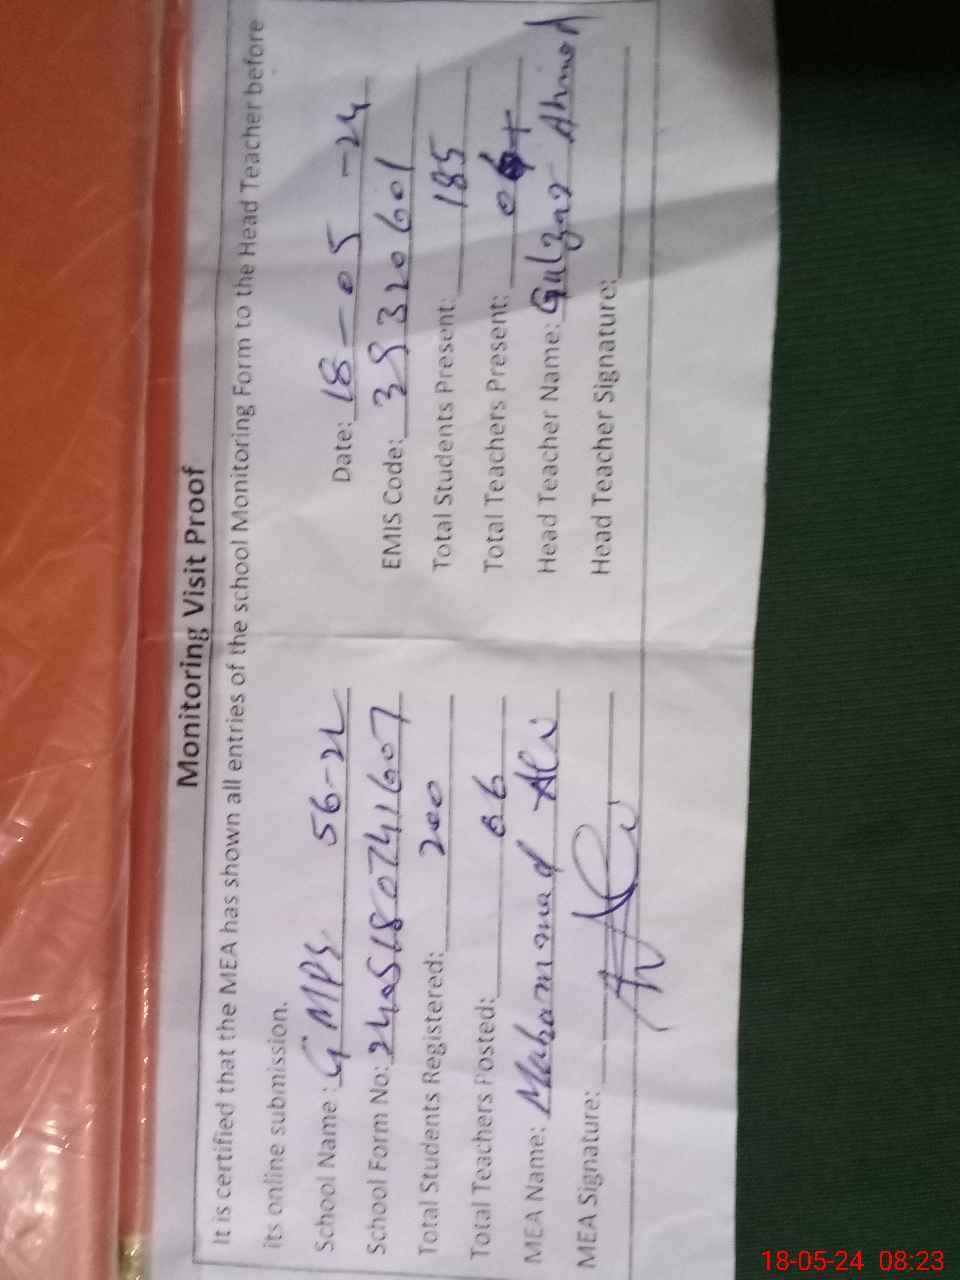 Monitoring Visit Proof
It is certified that the MEA has shown all entries of the school Monitoring Form to the Head Teacher before
its online submission.
School Name: GMPS 56-2L Date: 18-05-24
School Form No: 2405180741607 EMIS Code: 39320601
Total Students Registered: 200 Total Students Present: 185
Total Teachers Posted: 06 Total Teachers Present:
MEA Name: Muhammad Ali Head Teacher Name: Gulzar Ahmad
MEA Signature: Head Teacher Signature:
18-05-24 08:23